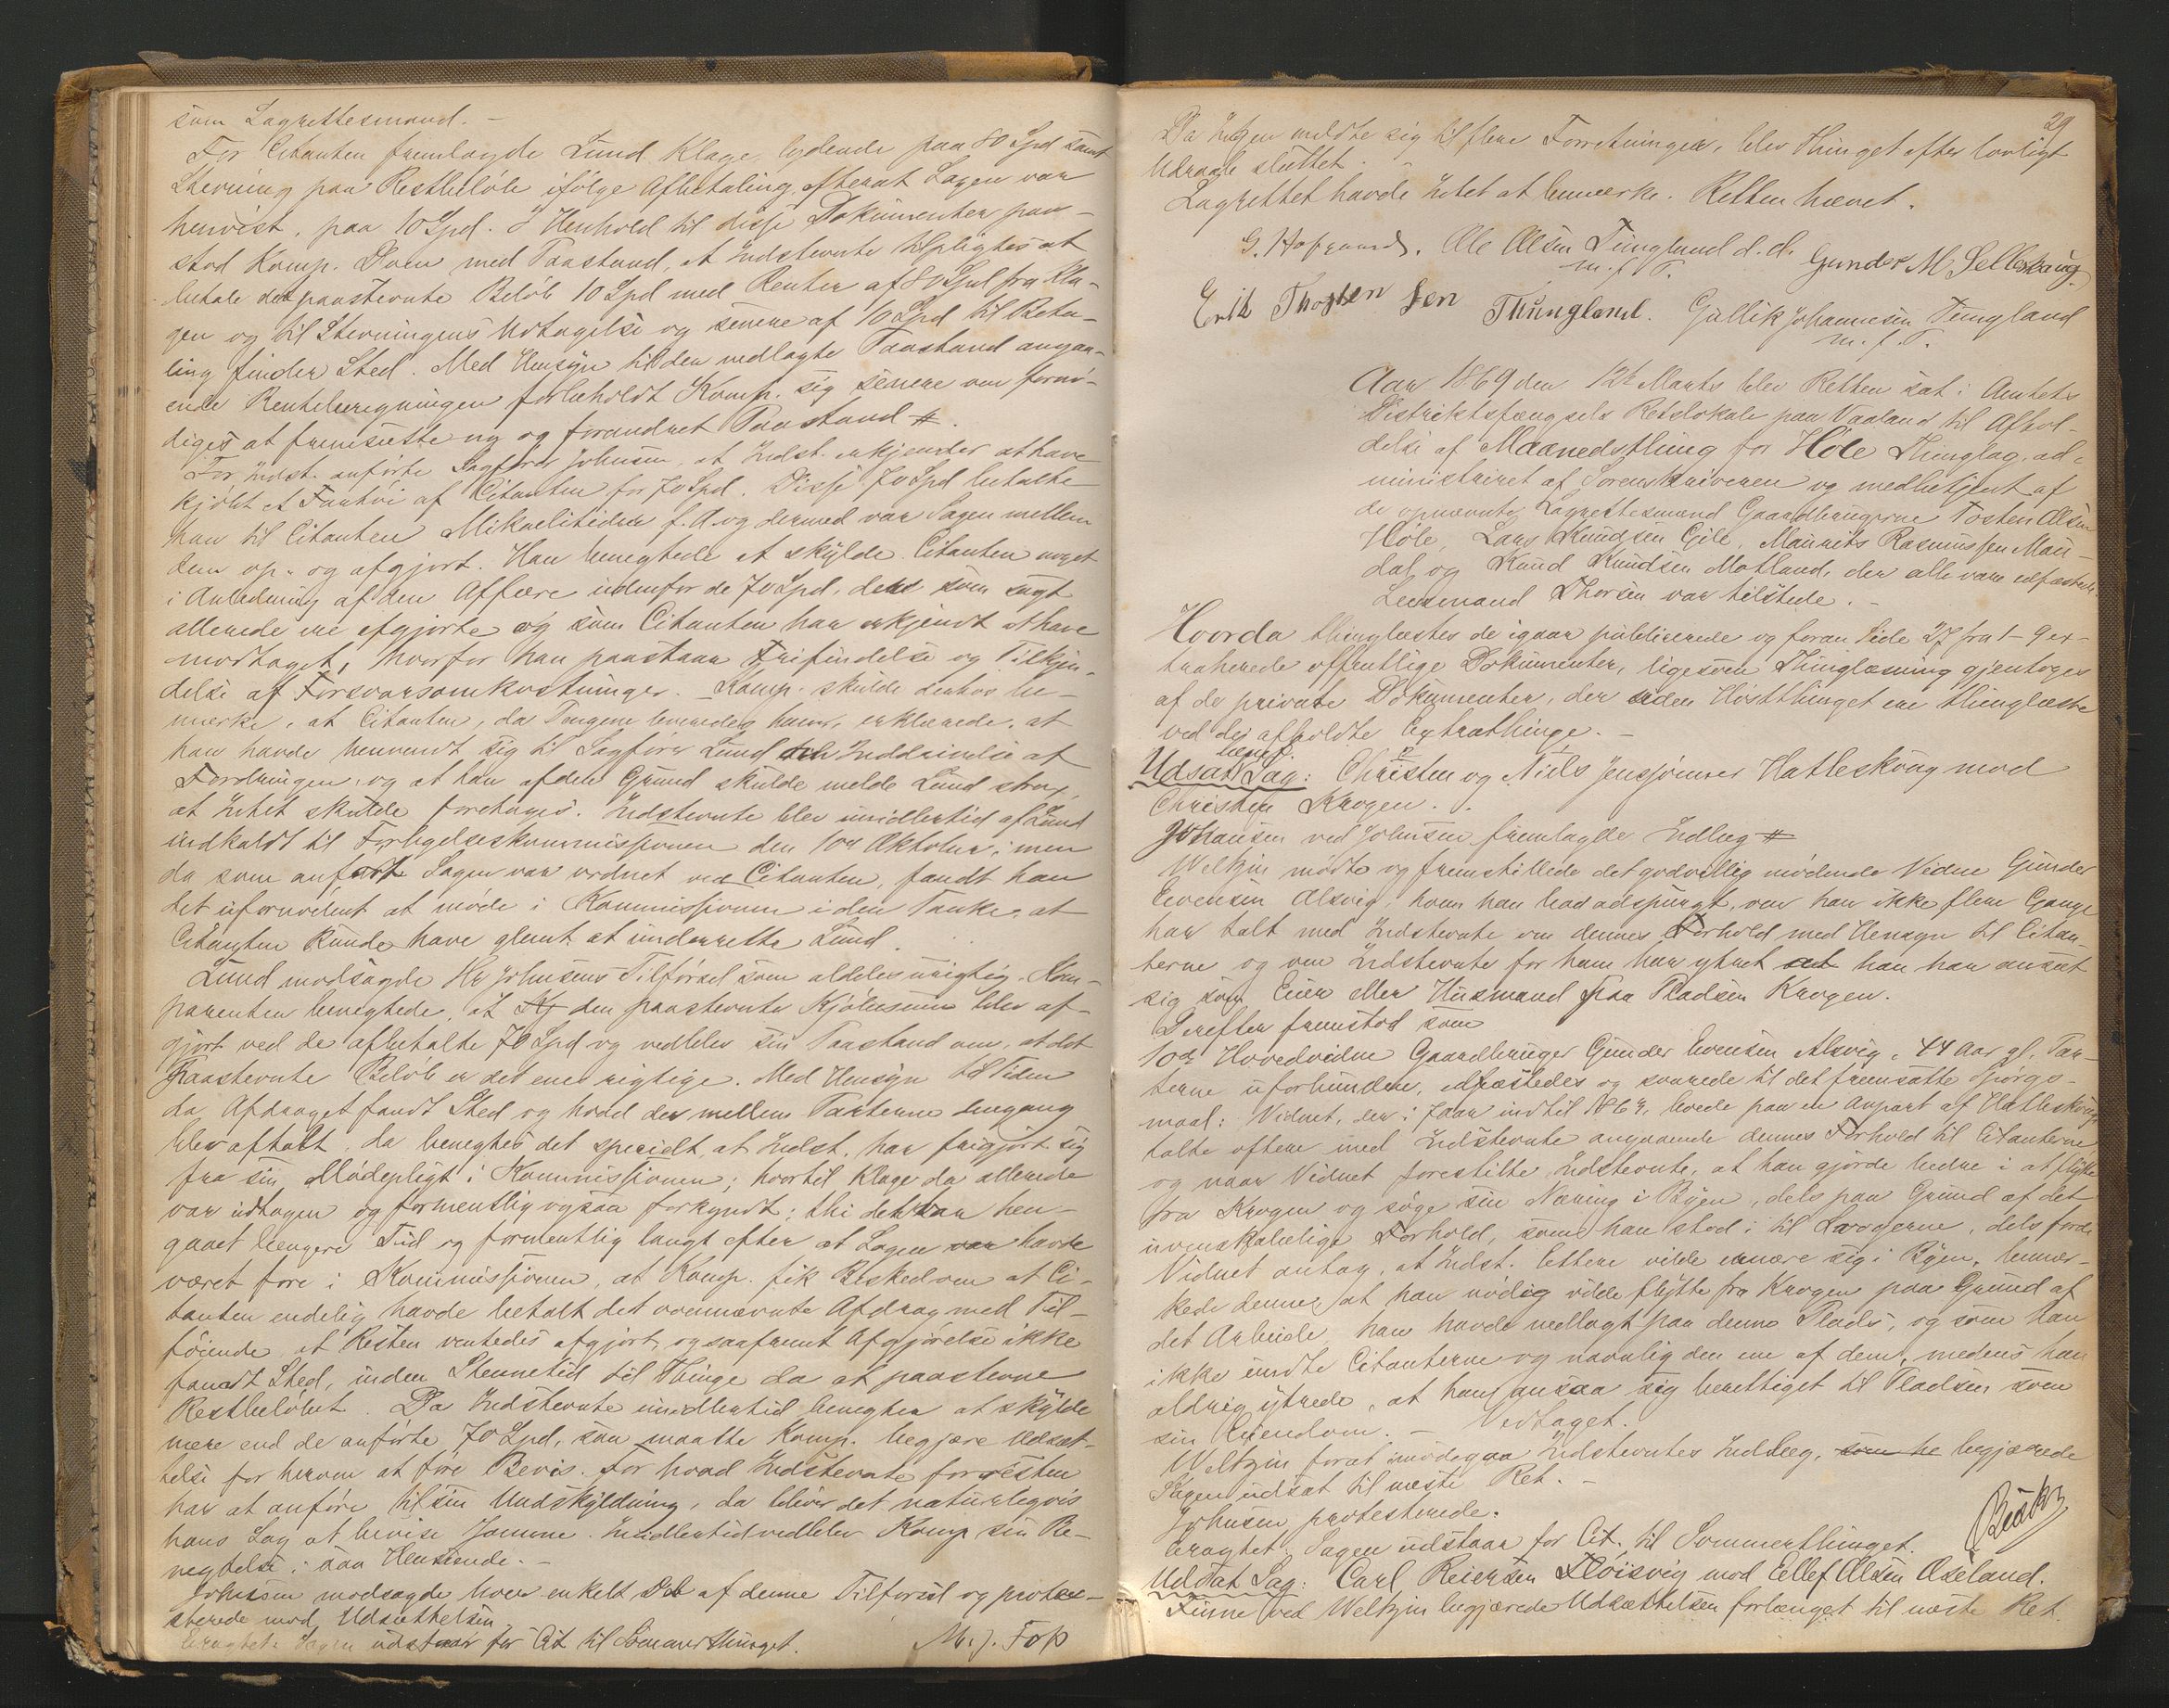 som Lagrettesmand. –
For Citanten fremlagde Lund Klage, lydende paa 80 Spd samt
Stevning paa Restbeløb ifølge Afbetaling, efterat Sagen var
henvist, paa 10 Spd. I Henhold til disse Dokumenter paa-
stod Komp. Dom med Paastand, at Indstevnte tilpligtes at
betale det paastevnte Beløb 10 Spd med Renter af 80 Spd fra Kla-
gen og til Stevningens Udtagelse og senere af 10 Spd til Beta-
ling finder Sted. Med Hensyn til den nedlagte Paastand angaa-
ende Renteberegningen forbeholdt Komp. sig senere om fornø-
diges at fremsætte ny og forandret Paastand #.
For Indst. anførte Sagfører Johnsen, at Indst. erkjender at have
kjøbt et Fartøi af Citanten for 70 Spd. Disse 70 Spd betalte
han til Citanten Mikaelitider f. A. og dermed var Sagen mellem
dem op- og afgjort. Han benegtede at skylde Citanten noget
i Anledning af den Affære udenfor de 70 Spd, der som sagt
allerede ere afgjorte og som Citanten har erkjendt at have
modtaget, hvorfor han paastaar Frifindelse og Tilkjen-
delse af Forsvarsomkostninger. Komp. skulde derhos be-
mærke, at Citanten, da Pengene leveredes ham, erklærede, at
han havde henvendt sig til Sagfører Lund om Inddrivelse af
Fordringen, og at han af den Grund skulde melde Lund strax,
at Intet skulde foretages. Indstevnte blev imidlertid af Lund
indkaldt til Forligelseskommissionen den 10de Oktober; men
da som anført Sagen var ordnet med Citanten, fandt han
det ufornødent at møde i Kommissionen i den Tanke, at
Citanten kunde have glemt at underrette Lund.
Lund modsagde Hr Johnsens Tilførsel som aldeles urigtig. Kom-
parenten benegtede, at den paastevnte Kjøbesum blev af-
gjort ved de afbetalte 70 Spd og vedblev sin Paastand om, at det
Paastevnte Beløb er det ene rigtige. Med Hensyn til Tiden
da Afdraget fandt Sted og hvad der mellem Parterne dengang
blev aftalt, da benegtes det specielt, at Indst. har frigjort sig
fra sin Mødepligt i Kommissionen; hvortil Klage da allerede
var udtagen og formentlig ogsaa forkyndt; thi det var hen-
gaaet længere Tid og formentlig langt efter at Sagen havde
været fore i Kommissionen, at Komp. fik Besked om at Ci-
tanten endelig havde betalt det ovennævnte Afdrag med Til-
føiende at Resten ventedes afgjort, og saafremt Afgjørelse ikke
fandt Sted, inden Stevnetid til Thinge da at paastevne
Restbeløbet. Da Indstevnte imidlertid benegter at skylde
mere end de anførte 70 Spd, saa maatte Komp. begjære Udsæt-
telse for herom at føre Bevis. For hvad Indstevnte forresten
har at anføre til sin Undskyldning, da bliver det naturligvis
hans Sag at bevise Samme. Imidlertid vedblev Komp sin Be-
negtelse i saa Henseende. –
Johnsen modsagde hver enkelt Del af denne Tilførsel og prote-
sterede mod Udsættelsen.
Eragtet: Sagen udstaar for Cit til Sommerthinget.
29
Da Ingen meldte sig til flere Forretninger, blev Thinget efter lovligt
Udraab sluttet.
Lagrettet havde Intet at bemærke. Retten hævet.
G. Hofgaard. Ole Olsen Tungland d. æ. Gunder M Selleskaug
m. f. P.
Erik Thorsten Sen Thungland. Gullik Johannesen Tungland
m. f. P.
Aar 1869 den 12te Marts blev Retten sat i Amtets
Distriktsfængsels Retslokale paa Vaaland til Afhol-
delse af Maanedsthing for Høle Thinglag, ad-
ministreret af Sorenskriveren og medbetjent af
de opnævnte Lagrettesmænd Gaardbrugerne Tosten Olsen
Høle, Lars Knudsen Gile, Maurits Rasmussen Mau-
dal og Knud Knudsen Motland, der alle vare edfæstede.
Lensmand Thorsen var tilstede. –
Hvorda thinglæstes de igaar publicerede og foran Side 27 fra 1–9 ex-
traherede offentlige Dokumenter, ligesom Thinglæsning gjentoges
af de private Dokumenter, der siden Høstthinget ere thinglæste
ved de afholdte Extrathinge. –
Udsat Sag: Christen og Niels Jenssønner Hatleskog mod
Christen Krogen.
Johansen ved Johnsen fremlagde Indlæg #
Weltzin mødte og fremstillede det godvillig mødende Vidne Gunder
Evensen Alsvig, hvem han bad adspurgt, om han ikke flere Gange
har talt med Indstevnte om dennes Forhold med Hensyn til Citan-
terne og om Indstevnte for ham har ytret at han har anseet
sig som Eier eller Husmand paa Pladsen Krogen.
Derefter fremstod som
10de Hovedvidne Gaardbruger Gunder Evensen Alsvig, 44 Aar gl. Par-
terne uforbunden, edfæstedes og svarede til det fremsatte Spørgs-
maal: Vidnet, der i 7 Aar indtil 1864, boede paa en Anpart af Hatleskog,
talte oftere med Indstevnte angaaende dennes Forhold til Citanterne
og naar Vidnet forestilte Indstevnte, at han gjorde bedre i at flytte
fra Krogen og søge sin Næring i Byen, dels paa Grund af det
uvenskabelige Forhold, som han stod i til Lavogerne, dels fordi
Vidnet antog, at Indst. lettere vilde ernære sig i Byen, bemær-
kede denne, at han nødig vilde flytte fra Krogen paa Grund af
det Arbeide, han havde nedlagt paa denne Plads, og som han
ikke undte Citanterne og navnlig den ene af dem, medens han
aldrig ytrede, at han ansaa sig berettiget til Pladsen som
sin Eiendom. – Vedtaget.
Weltzin foret imødegaa Indstevntes Indlæg, som he begjærede
Sagen udsat til næste Ret. –
Johnsen protesterede.
Eragtet: Sagen udstaar for Cit. til Sommerthinget.
Udsat Sag: Carl Reiersen Fløisvig mod Ellef Olsen Øseland.
Finne ved Weltzin begjærede Udsættelsen forlænget til næste Ret.